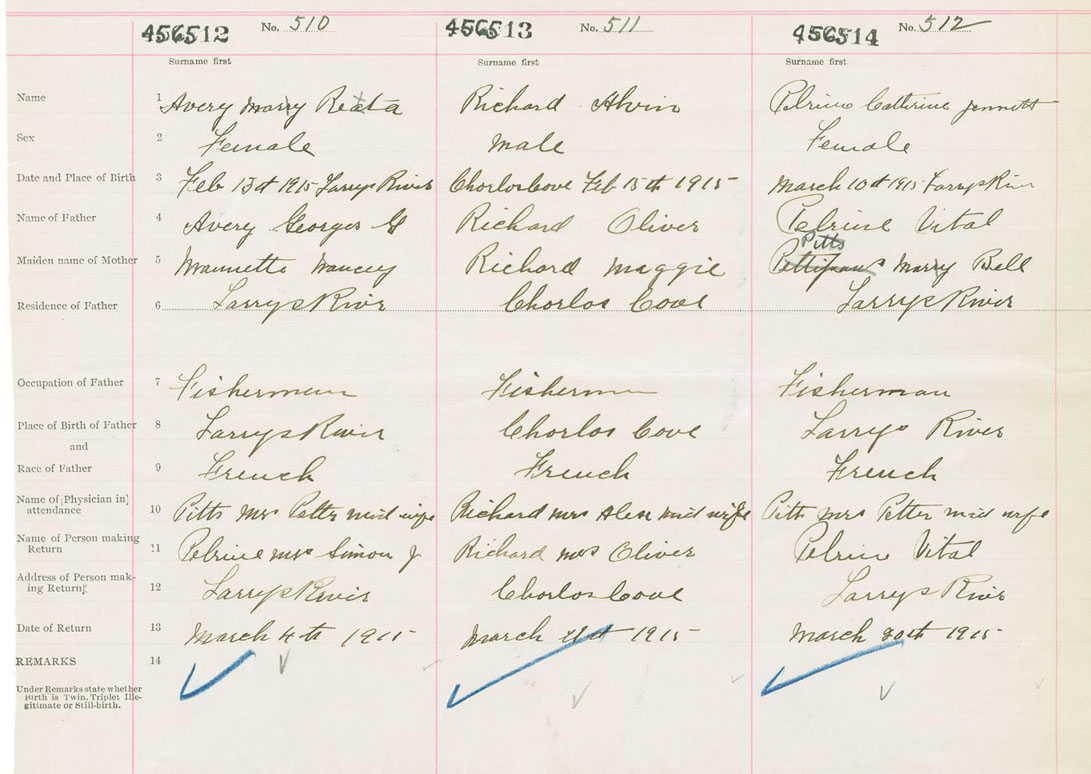 456512 No. 510 456513 No. 511 456514 No. 512
Surname first Surname first Surname first
Name 1 Avery Marry Reata Richard Alvin Pelrine Catherine Jennett
Sex 2 Female Male Female
Date and Place of Birth 3 Feb 13th 1915 Larrys River Charlos Cove Feb 15th 1915 March 10th 1915 Larrys River
Name of Father 4 Avery Georges G Richard Oliver Pelrine Vital
Pitts
Maiden name of Mother 5 Mannette Richard Maggie Marry Bell
Residence of Father 6 Larrys River Charlos Cove Larrys River
Occupation of Father 7 Fisherman Fisherman Fisherman
Place of Birth of Father 8 Larrys River Charlos Cove Larrys River
and
Race of Father 9 French French French
Name of [Physician in]
attendance 10 Pitts Mrs Petter mid wife Richard Mrs Alex mid wife Pitts Mrs Petter mid wife
Name of Person making
Return 11 Pelrine Mrs Simon J Richard Mrs Oliver Pelrine Vital
Address of Person mak-
ing Return 12 Larrys River Charlos Cove Larrys River
Date of Return 13 March 4th 1915 March 1915 March 20th 1915
REMARKS 14
Under Remarks state whether
Birth is Twin, Triplet, Ille-
gitimate or Still-birth.